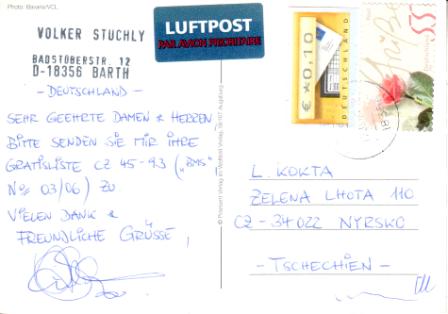 Photo: Bavaria/VCL
VOLKER STUCHLY
BADSTÜBERSTR. 12
D-18356 BARTH
- DEUTSCHLAND -
SEHR GEEHRTE DAMEN & HERREN,
BITTE SENDEN SIE MIR IHRE
GRATISLISTE CZ 45-93 („BMS"
No 03/06) ZU
VIELEN DANK &
FREUNDLICHE GRÜSSE,
LUFTPOST
PAR AVION PRIORITAIRE
€ *0,10
DEUTSCHLAND
55
L. KOKTA
ZELENA LHOTA 110
CZ-34022 NYRSKO
- TSCHECHIEN -